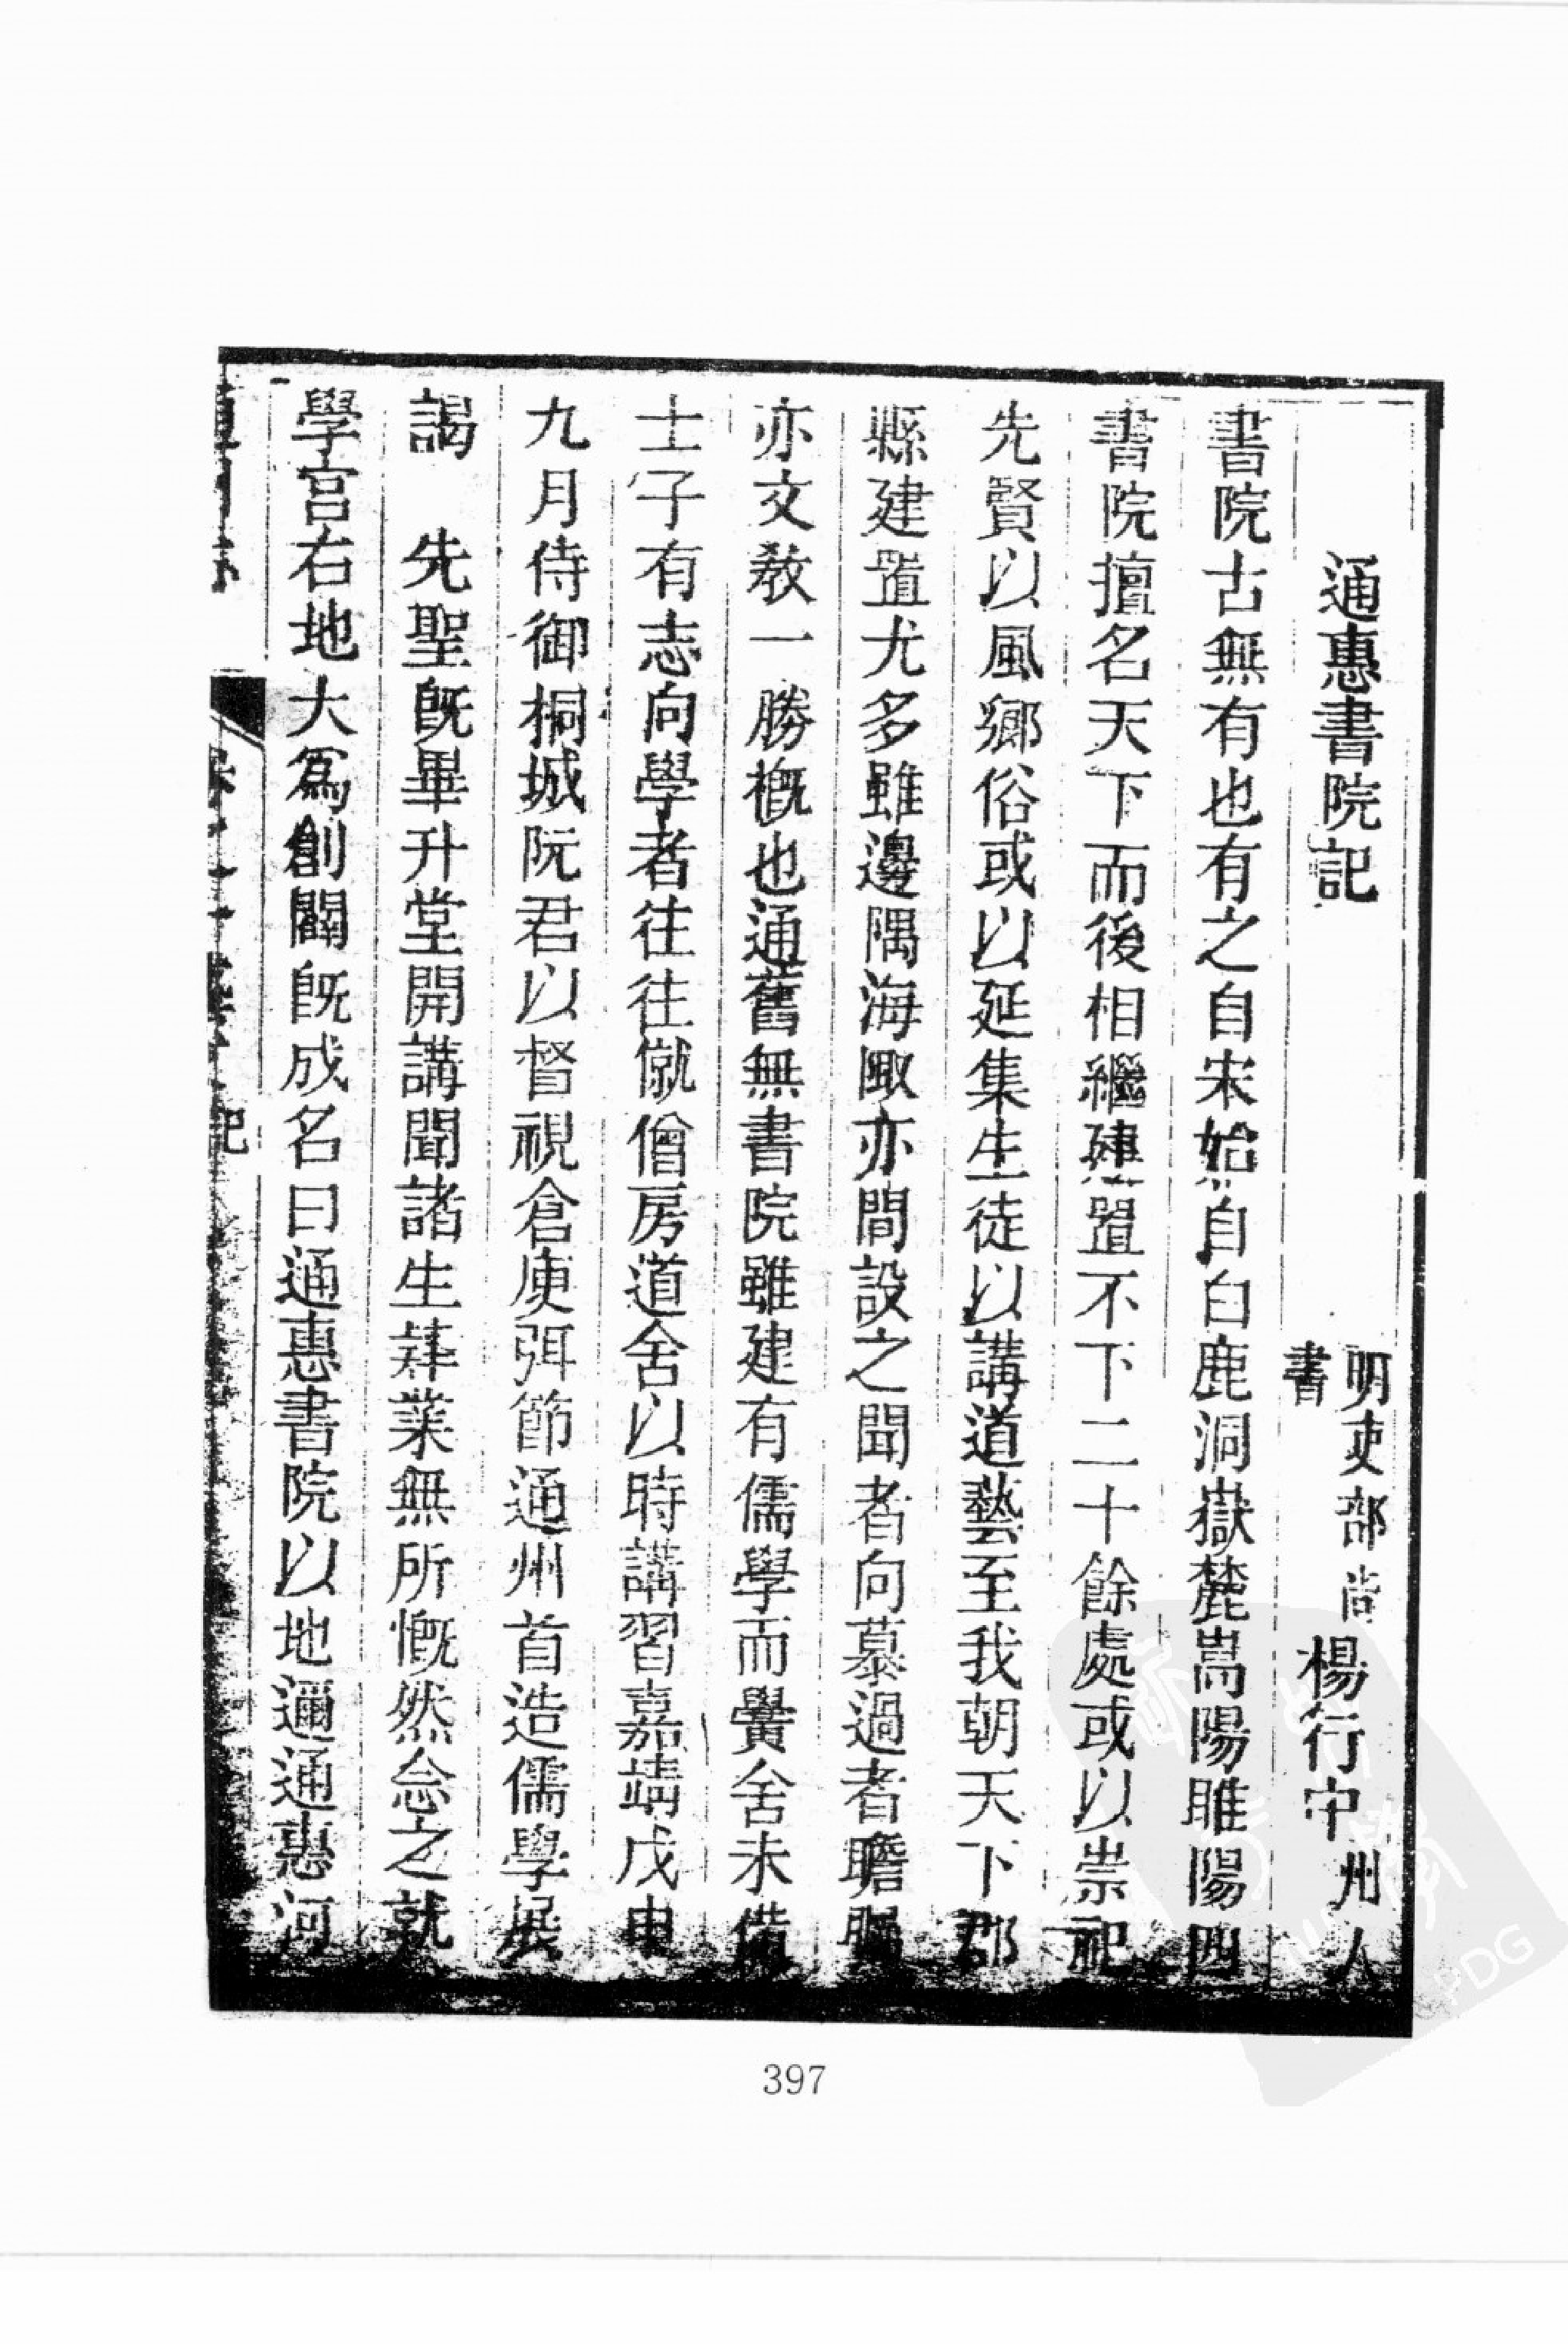 通惠書院記 明吏部尚書楊行中州人
書院古無有也有之自宋始自白鹿洞嶽麓嵩陽睢陽四
書院擅名天下而後相繼建置不下二十餘處或以崇祀
先賢以風鄉俗或以延集生徒以講道藝至我朝天下郡
縣建置尤多雖邊隅海陬亦間設之聞者向慕過者瞻矚
亦文教一勝槪也通舊無書院雖建有儒學而黌舍未備
士子有志向學者往往僦僧房道舍以時講習嘉靖戊申
九月侍御桐城阮君以督視倉庾弭節通州首造儒學展
謁 先聖旣畢升堂開講聞諸生肄業無所慨然念之就
學宮右地大爲創闢旣成名曰通惠書院以地邇通惠河
記
397
PDG